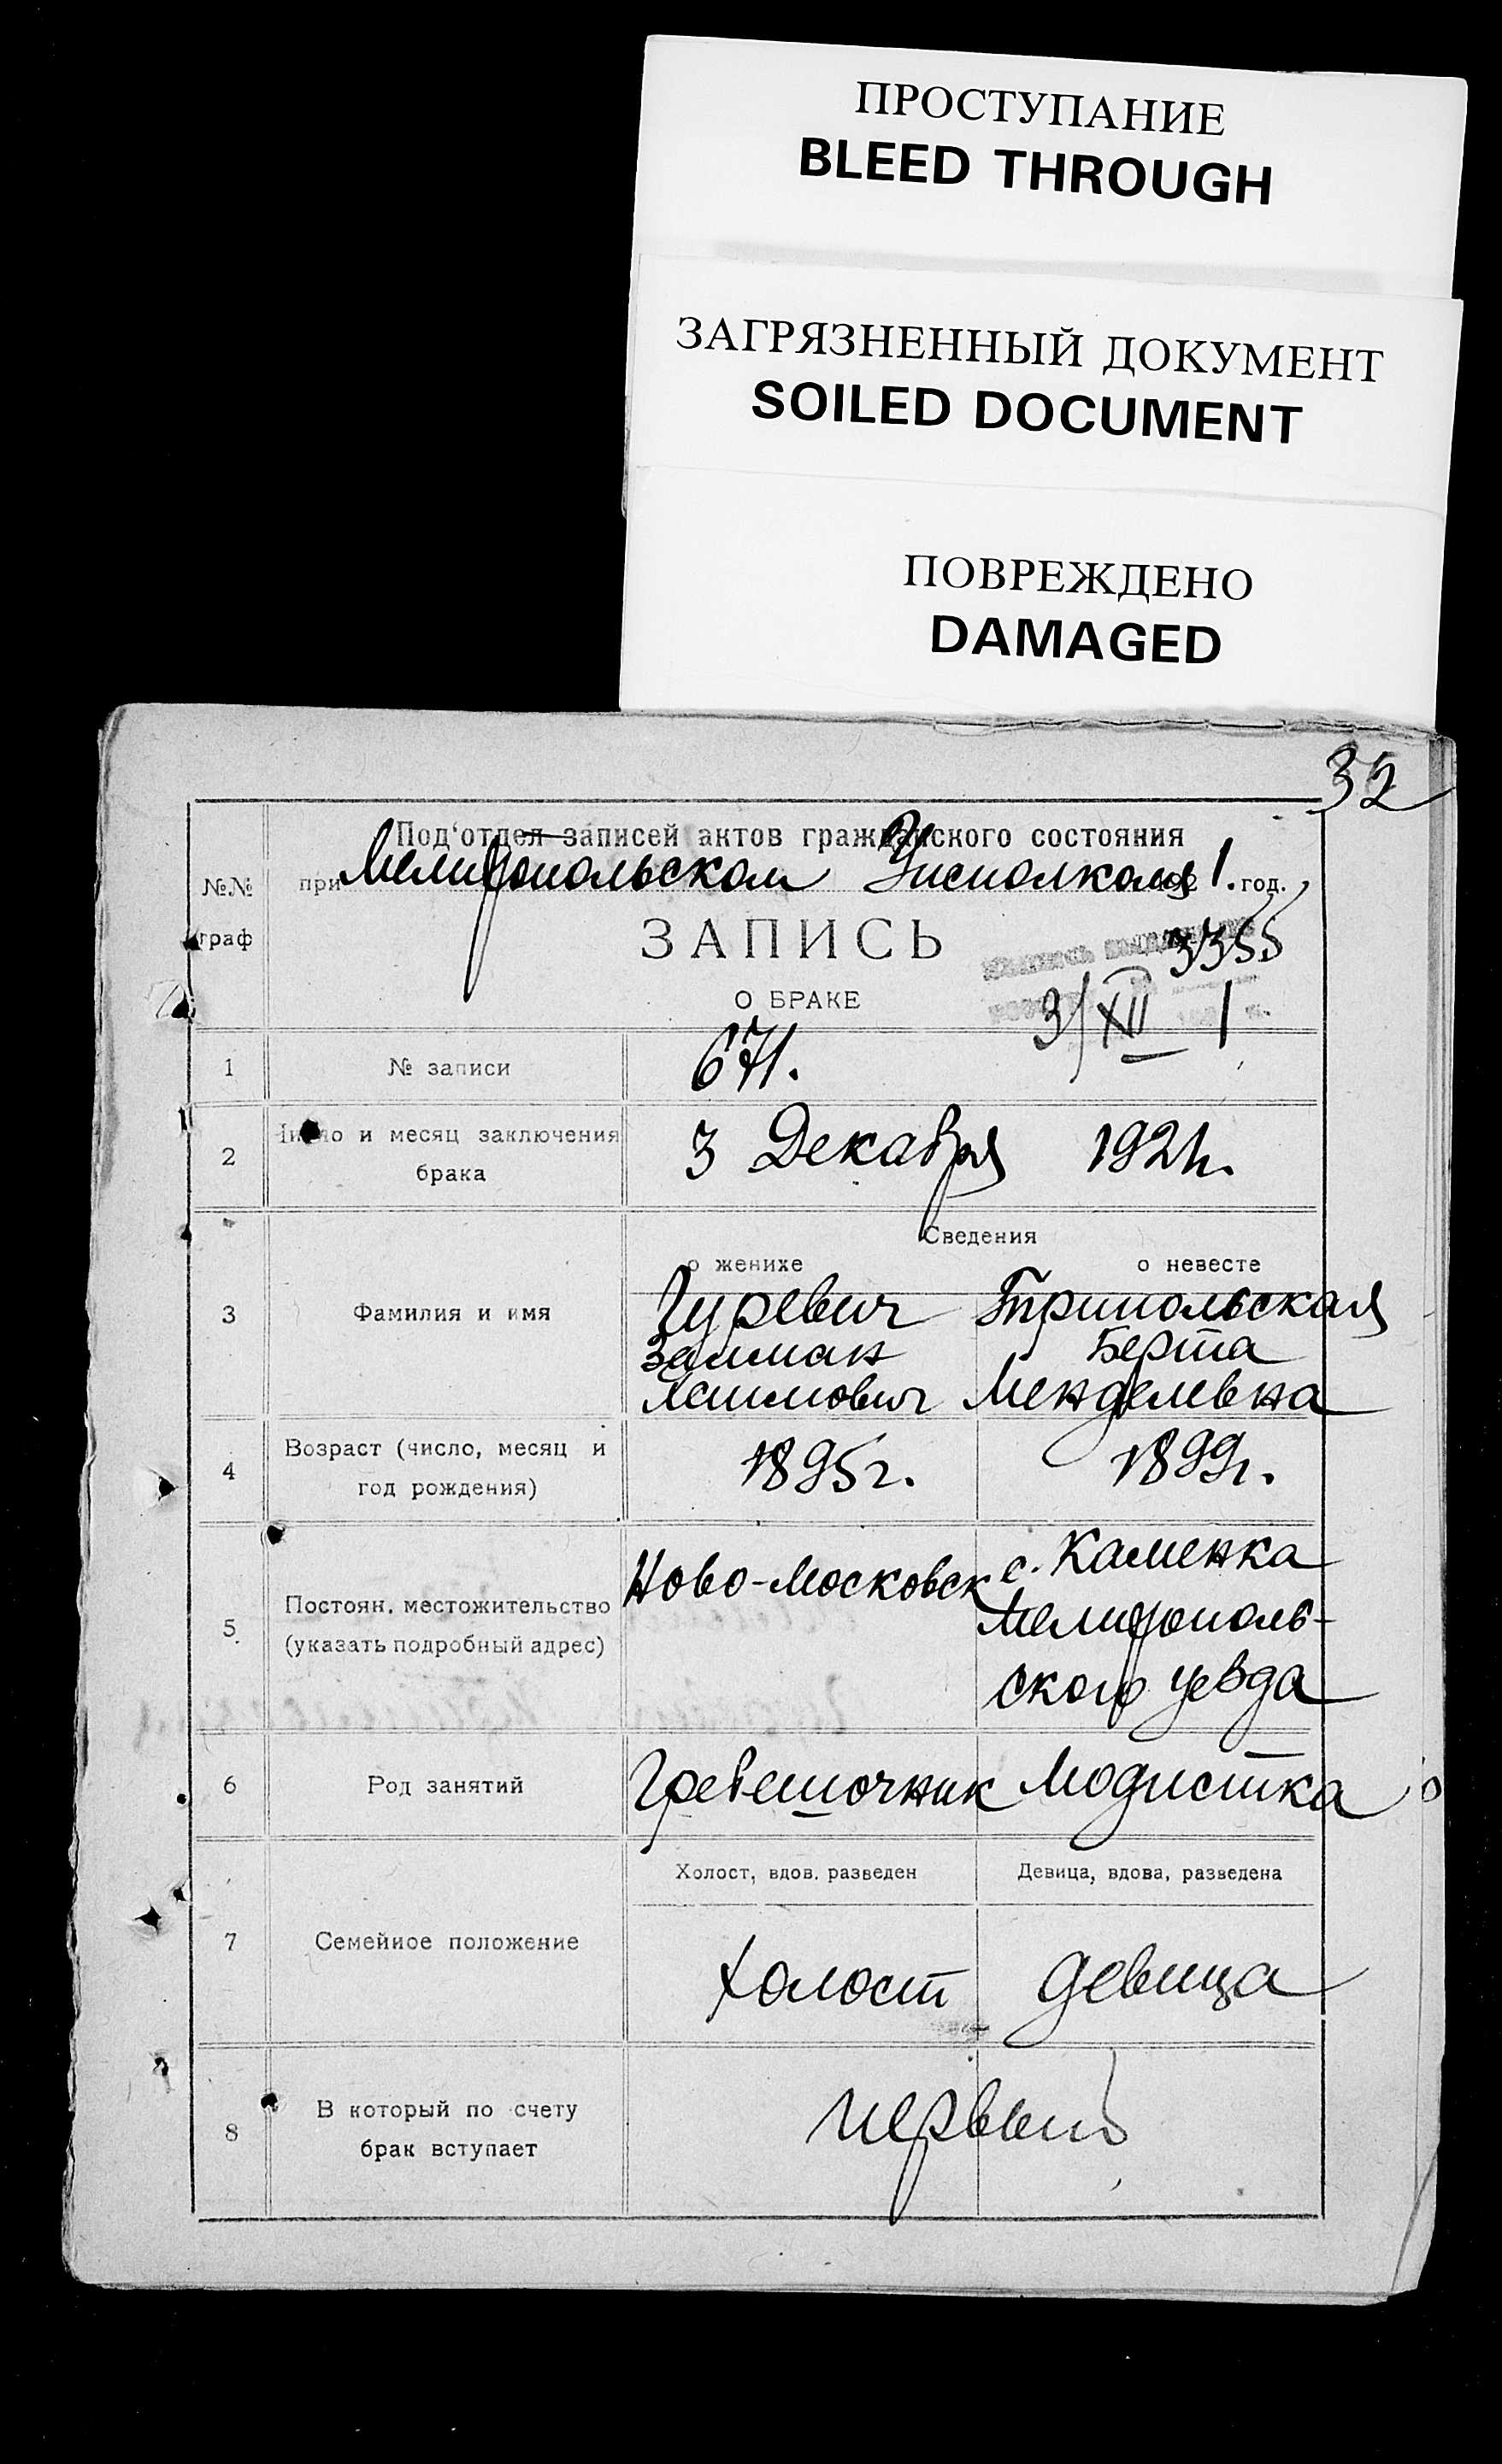 ПРОСТУПАНИЕ
BLEED THROUGH
ЗАГРЯЗНЕННЫЙ ДОКУМЕНТ
SOILED DOCUMENT
ПОВРЕЖДЕНО
DAMAGED
32
Под'отдел записей актов гражданского состояния
№№ при Мелитопольском Уисполкоме 1. год.
граф
ЗАПИСЬ
3355
О БРАКЕ
3/XII 1
1 № записи 671.
2 Число и месяц заключения брака 3 Декабря 1921г.
Сведения
о женихе о невесте
3 Фамилия и имя Гуревич Трипольская
Залман Берта
Менделевна
4 Возраст (число, месяц и год рождения) 1895г. 1899г.
5 Постоян. местожительство (указать подробный адрес) Ново-Московск с. Каменка
Мелитополь-
ского уезда
6 Род занятий Гребешочник Модистка
Холост, вдов. разведен Девица, вдова, разведена
7 Семейное положение холост девица
8 В который по счету брак вступает первый